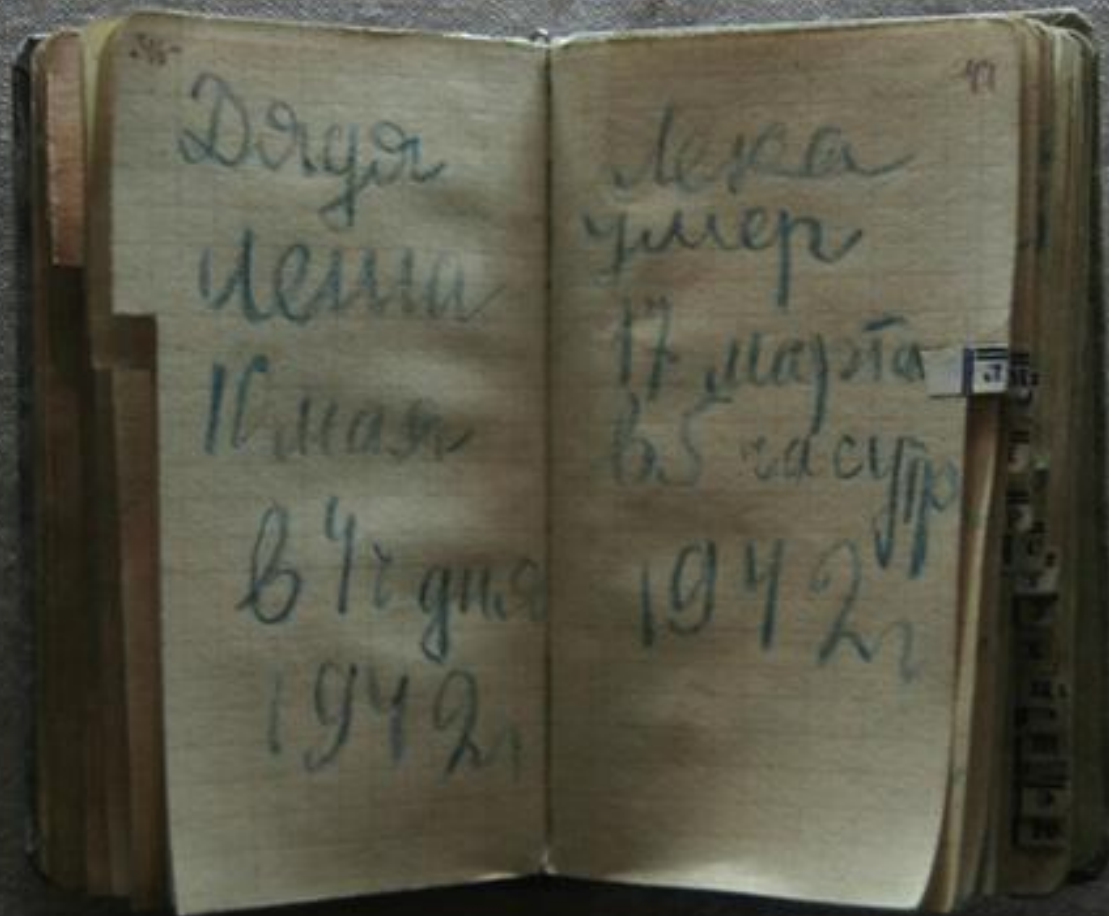 Дядя
Леша
10 мая
в 4ч дня
1942г
Лека
умер
17 марта
в 5 час утр
1942г
Л